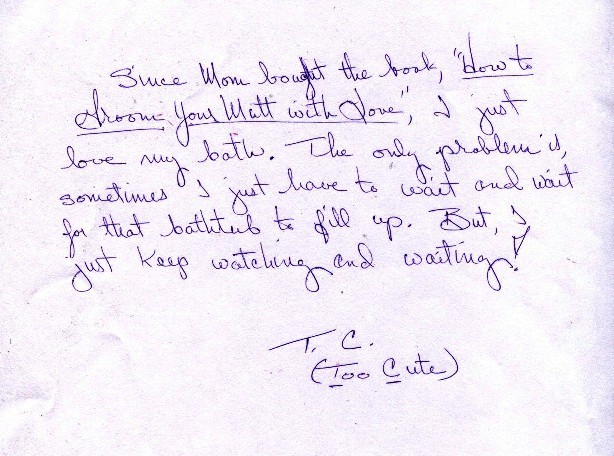 Since Mom bought the book, "How to
Groom Your Mutt with Love", I just
love my bath. The only problem is,
sometimes I just have to wait and wait
for that bathtub to fill up. But, I
just keep watching and waiting!
T. C.
(Too Cute)